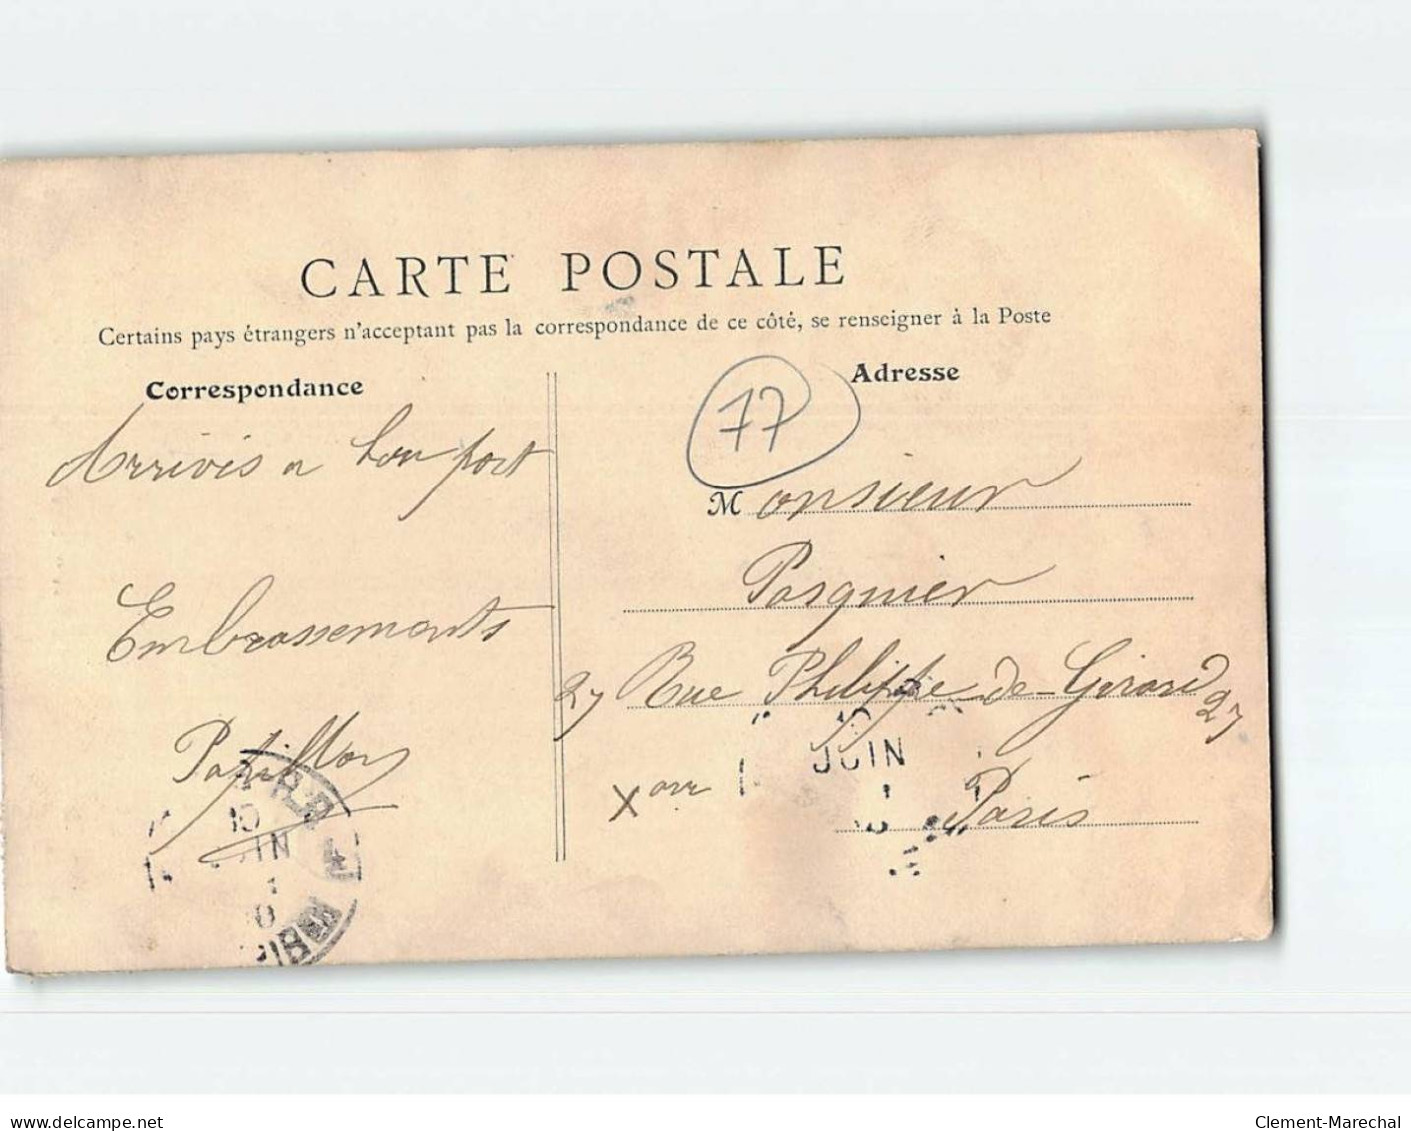 CARTE POSTALE
Certains pays étrangers n'acceptant pas la correspondance de ce côté, se renseigner à la Poste
Correspondance
Arrivés a bon port
Embrassements
Papillon
Adresse
77
Monsieur
Pasquier
27 Rue Philippe-de-Girard 27
X arr
Paris
10
JUIN
10
JUIN
delcampe.net
Clement-Marechal